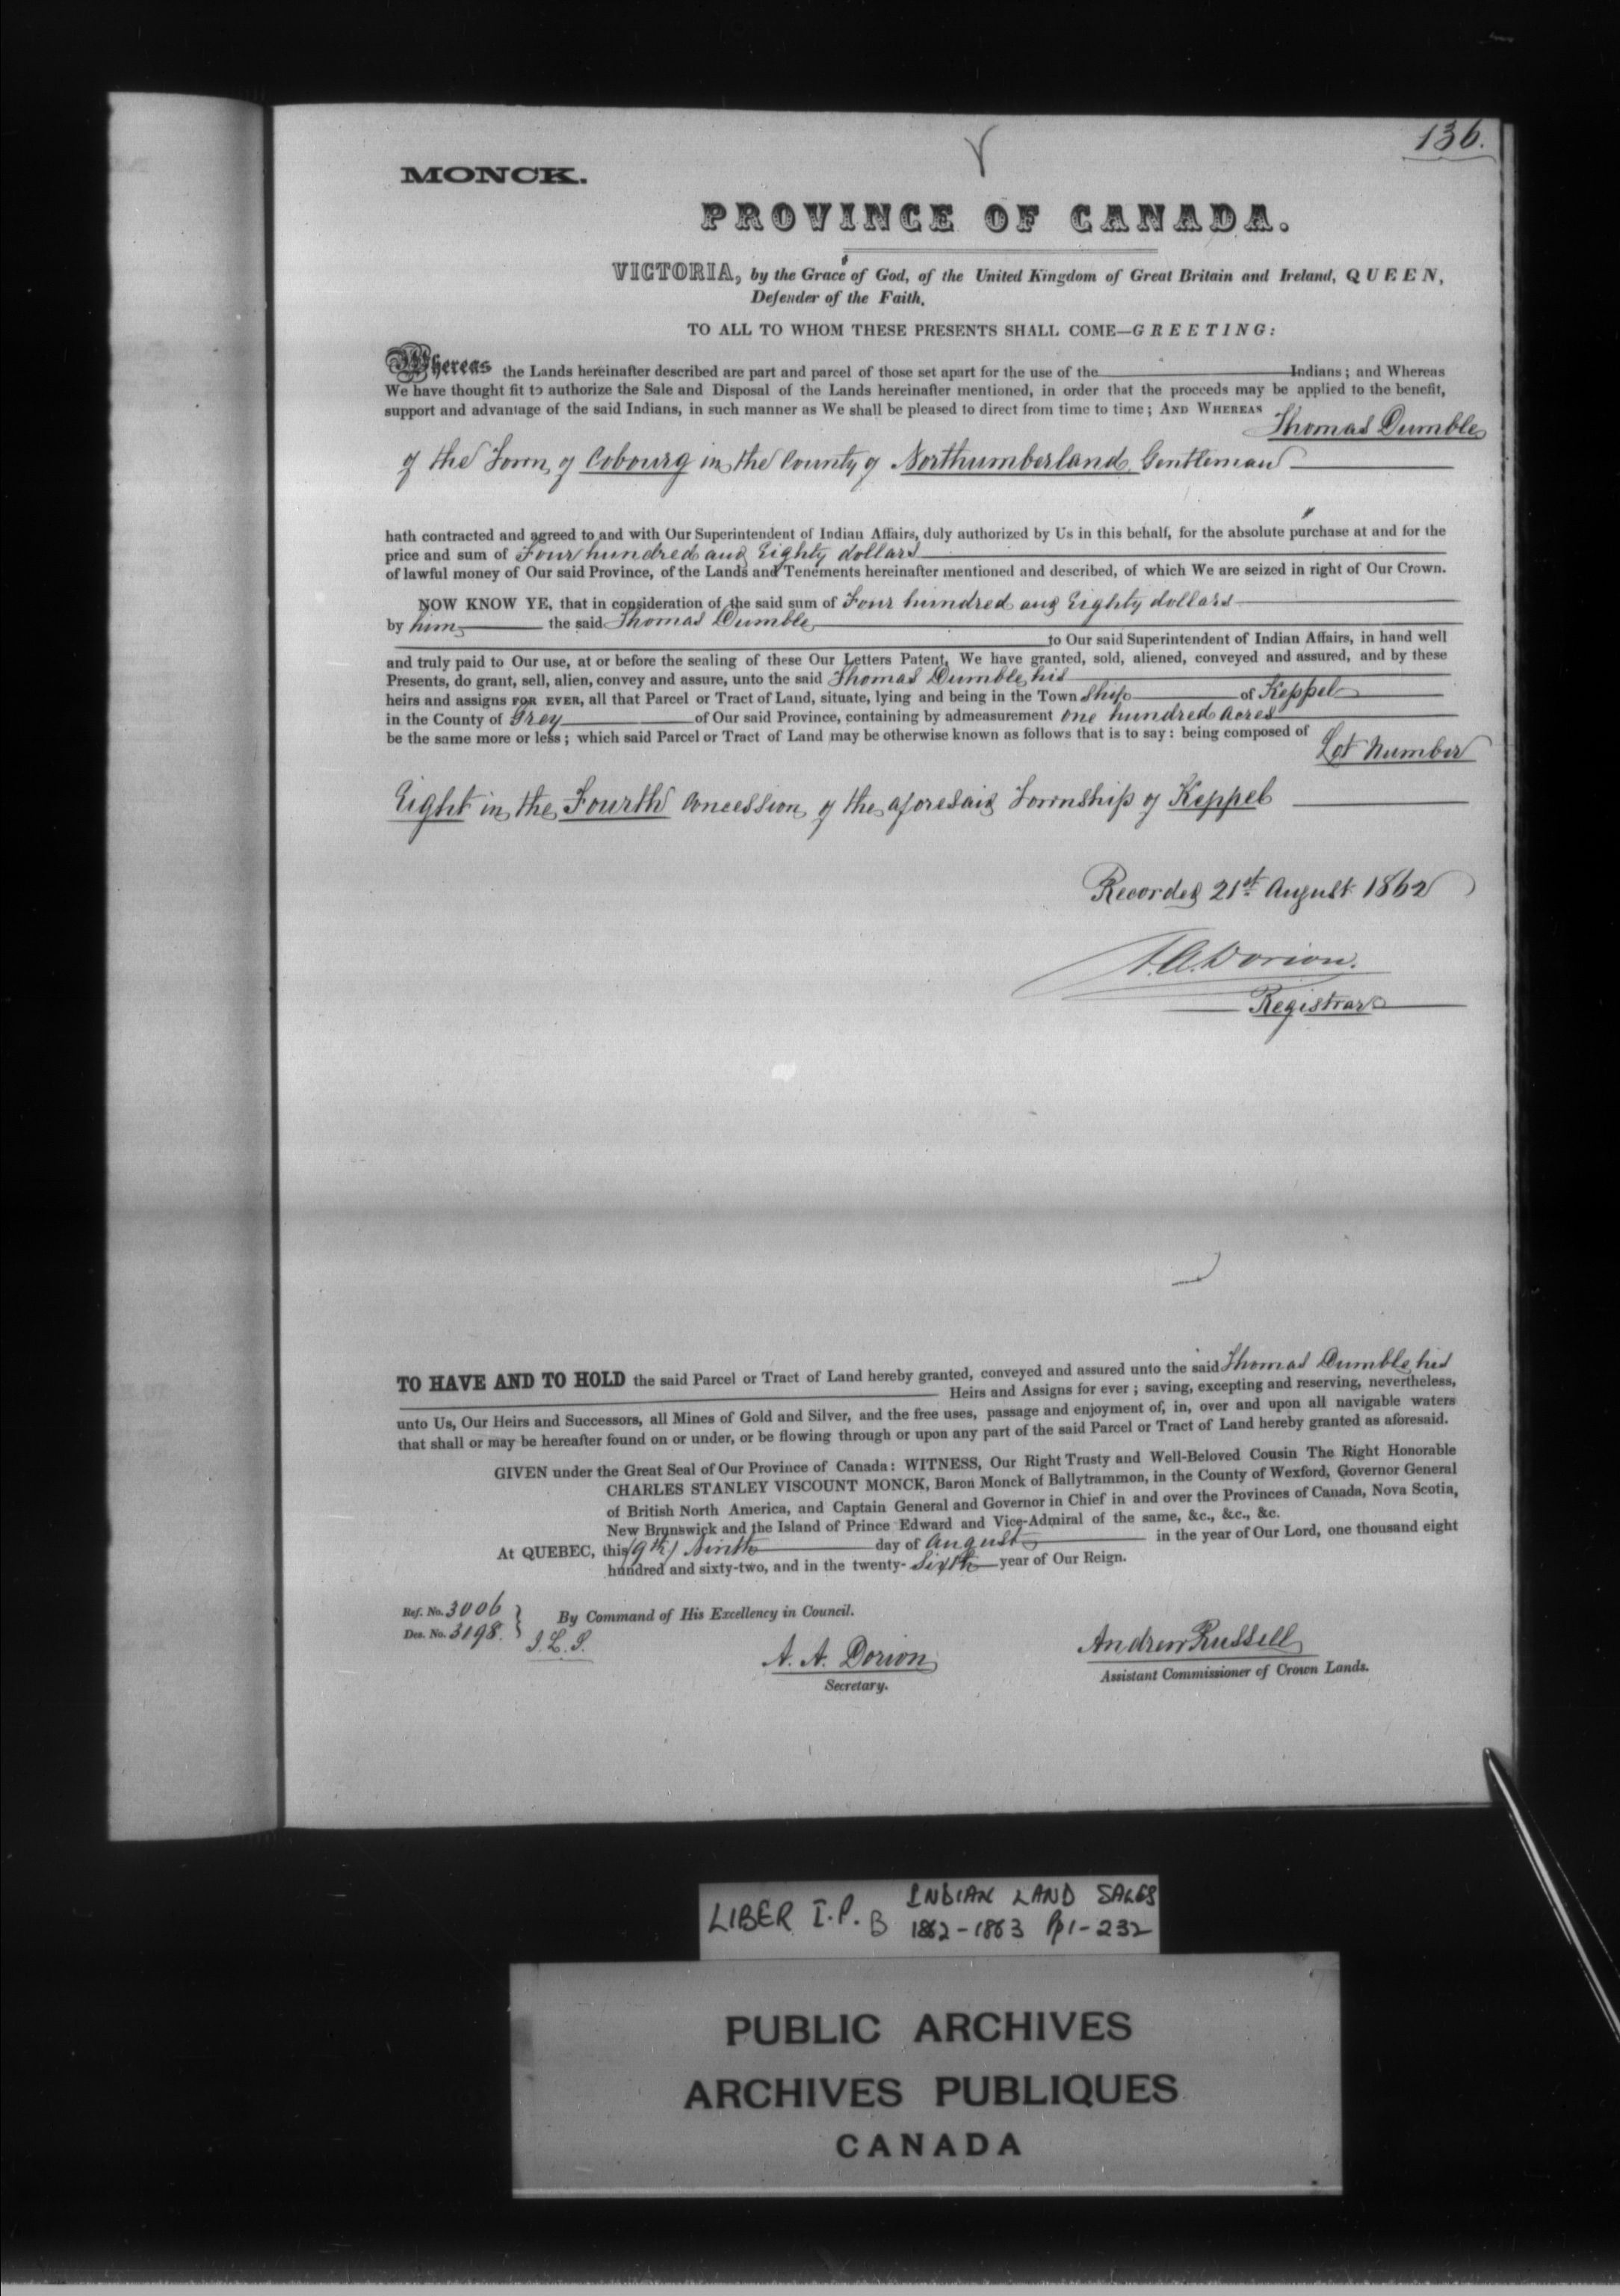 136.
MONCK.
PROVINCE OF CANADA.
VICTORIA, by the Grace of God, of the United Kingdom of Great Britain and Ireland, QUEEN,
Defender of the Faith,
TO ALL TO WHOM THESE PRESENTS SHALL COME—GREETING:
Whereas the Lands hereinafter described are part and parcel of those set apart for the use of the Indians; and Whereas
We have thought fit to authorize the Sale and Disposal of the Lands hereinafter mentioned, in order that the proceeds may be applied to the benefit,
support and advantage of the said Indians, in such manner as We shall be pleased to direct from time to time; AND WHEREAS
Thomas Dumble
of the Town of Cobourg in the County of Northumberland Gentleman
hath contracted and agreed to and with Our Superintendent of Indian Affairs, duly authorized by Us in this behalf, for the absolute purchase at and for the
price and sum of Four hundred and Eighty dollars
of lawful money of Our said Province, of the Lands and Tenements hereinafter mentioned and described, of which We are seized in right of Our Crown.
NOW KNOW YE, that in consideration of the said sum of Four hundred and Eighty dollars
by him the said Thomas Dumble
to Our said Superintendent of Indian Affairs, in hand well
and truly paid to Our use, at or before the sealing of these Our Letters Patent, We have granted, sold, aliened, conveyed and assured, and by these
Presents, do grant, sell, alien, convey and assure, unto the said Thomas Dumble, his
heirs and assigns FOR EVER, all that Parcel or Tract of Land, situate, lying and being in the Town ship of Keppel
in the County of Grey of Our said Province, containing by admeasurement one hundred acres
be the same more or less; which said Parcel or Tract of Land may be otherwise known as follows that is to say: being composed of
Lot Number
Eight in the Fourth Concession of the aforesaid Township of Keppel
Recorded 21st August 1862
A.A. Dorion.
Registrar
TO HAVE AND TO HOLD the said Parcel or Tract of Land hereby granted, conveyed and assured unto the said Thomas Dumble, his
Heirs and Assigns for ever; saving, excepting and reserving, nevertheless,
unto Us, Our Heirs and Successors, all Mines of Gold and Silver, and the free uses, passage and enjoyment of, in, over and upon all navigable waters
that shall or may be hereafter found on or under, or be flowing through or upon any part of the said Parcel or Tract of Land hereby granted as aforesaid.
GIVEN under the Great Seal of Our Province of Canada: WITNESS, Our Right Trusty and Well-Beloved Cousin The Right Honorable
CHARLES STANLEY VISCOUNT MONCK, Baron Monck of Ballytrammon, in the County of Wexford, Governor General
of British North America, and Captain General and Governor in Chief in and over the Provinces of Canada, Nova Scotia,
New Brunswick and the Island of Prince Edward and Vice-Admiral of the same, &c., &c., &c.
At QUEBEC, this (9th) Ninth day of August in the year of Our Lord, one thousand eight
hundred and sixty-two, and in the twenty- Sixth year of Our Reign.
Ref. No. 3006
Des. No. 3198.
By Command of His Excellency in Council.
A. A. Dorion
Secretary.
Andrew Russell
Assistant Commissioner of Crown Lands.
LIBER I.P. B INDIAN LAND SALES
1862-1863 Pp 1-232
PUBLIC ARCHIVES
ARCHIVES PUBLIQUES
CANADA